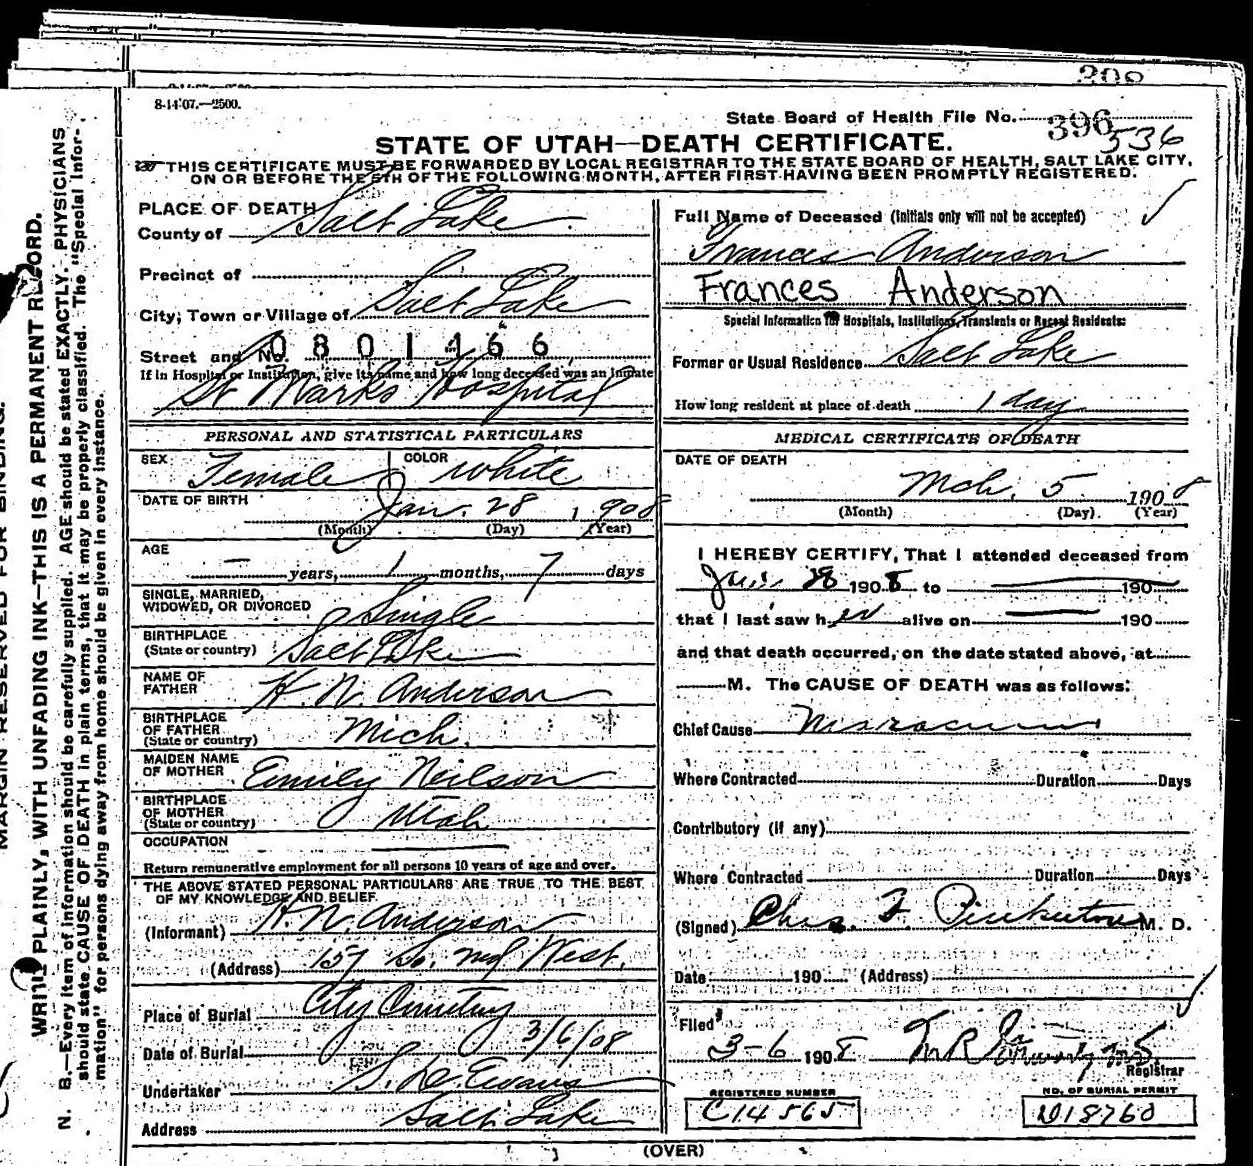 308
8-14-07.—2500.
State Board of Health File No. 396
536
STATE OF UTAH—DEATH CERTIFICATE.
THIS CERTIFICATE MUST BE FORWARDED BY LOCAL REGISTRAR TO THE STATE BOARD OF HEALTH, SALT LAKE CITY,
ON OR BEFORE THE 5TH OF THE FOLLOWING MONTH, AFTER FIRST HAVING BEEN PROMPTLY REGISTERED.
PLACE OF DEATH
County of Salt Lake
Precinct of
City, Town or Village of Salt Lake
Street and No. 0801466
If in Hospital or Institution, give its name and how long deceased was an inmate
St Marks Hospital
PERSONAL AND STATISTICAL PARTICULARS
SEX Female COLOR White
DATE OF BIRTH Jan. 28, 1908
(Month) (Day) (Year)
AGE
— years, 1 months, 7 days
SINGLE, MARRIED,
WIDOWED, OR DIVORCED Single
BIRTHPLACE
(State or country) Salt Lake
NAME OF
FATHER H. N. Anderson
BIRTHPLACE
OF FATHER
(State or country) Mich.
MAIDEN NAME
OF MOTHER Emily Neilson
BIRTHPLACE
OF MOTHER
(State or country) Utah
OCCUPATION
Return remunerative employment for all persons 10 years of age and over.
THE ABOVE STATED PERSONAL PARTICULARS ARE TRUE TO THE BEST
OF MY KNOWLEDGE AND BELIEF.
(Informant) H. N. Anderson
(Address) 157 So. West.
Place of Burial City Cemetery
Date of Burial 3/6/08
Undertaker S. D. Evans
Address Salt Lake
Full Name of Deceased (Initials only will not be accepted)
Frances Anderson
Frances Anderson
Special Information for Hospitals, Institutions, Transients or Recent Residents:
Former or Usual Residence Salt Lake
How long resident at place of death 1 day
MEDICAL CERTIFICATE OF DEATH
DATE OF DEATH
Mch. 5 1908
(Month) (Day) (Year)
I HEREBY CERTIFY, That I attended deceased from
Jan. 28 1908 to 190
that I last saw her alive on 190
and that death occurred, on the date stated above, at
M. The CAUSE OF DEATH was as follows:
Chief Cause Marasmus
Where Contracted Duration Days
Contributory (if any)
Where Contracted Duration Days
(Signed) Chas. F. Pinkerton M. D.
Date 190 (Address)
Filed
3-6 1908
Registrar
REGISTERED NUMBER
C14565
NO. OF BURIAL PERMIT
D18760
(OVER)
MARGIN RESERVED FOR BINDING.
WRITE PLAINLY, WITH UNFADING INK—THIS IS A PERMANENT RECORD.
N. B.—Every item of information should be carefully supplied. AGE should be stated EXACTLY. PHYSICIANS
should state CAUSE OF DEATH in plain terms, that it may be properly classified. The "Special Infor-
mation" for persons dying away from home should be given in every instance.